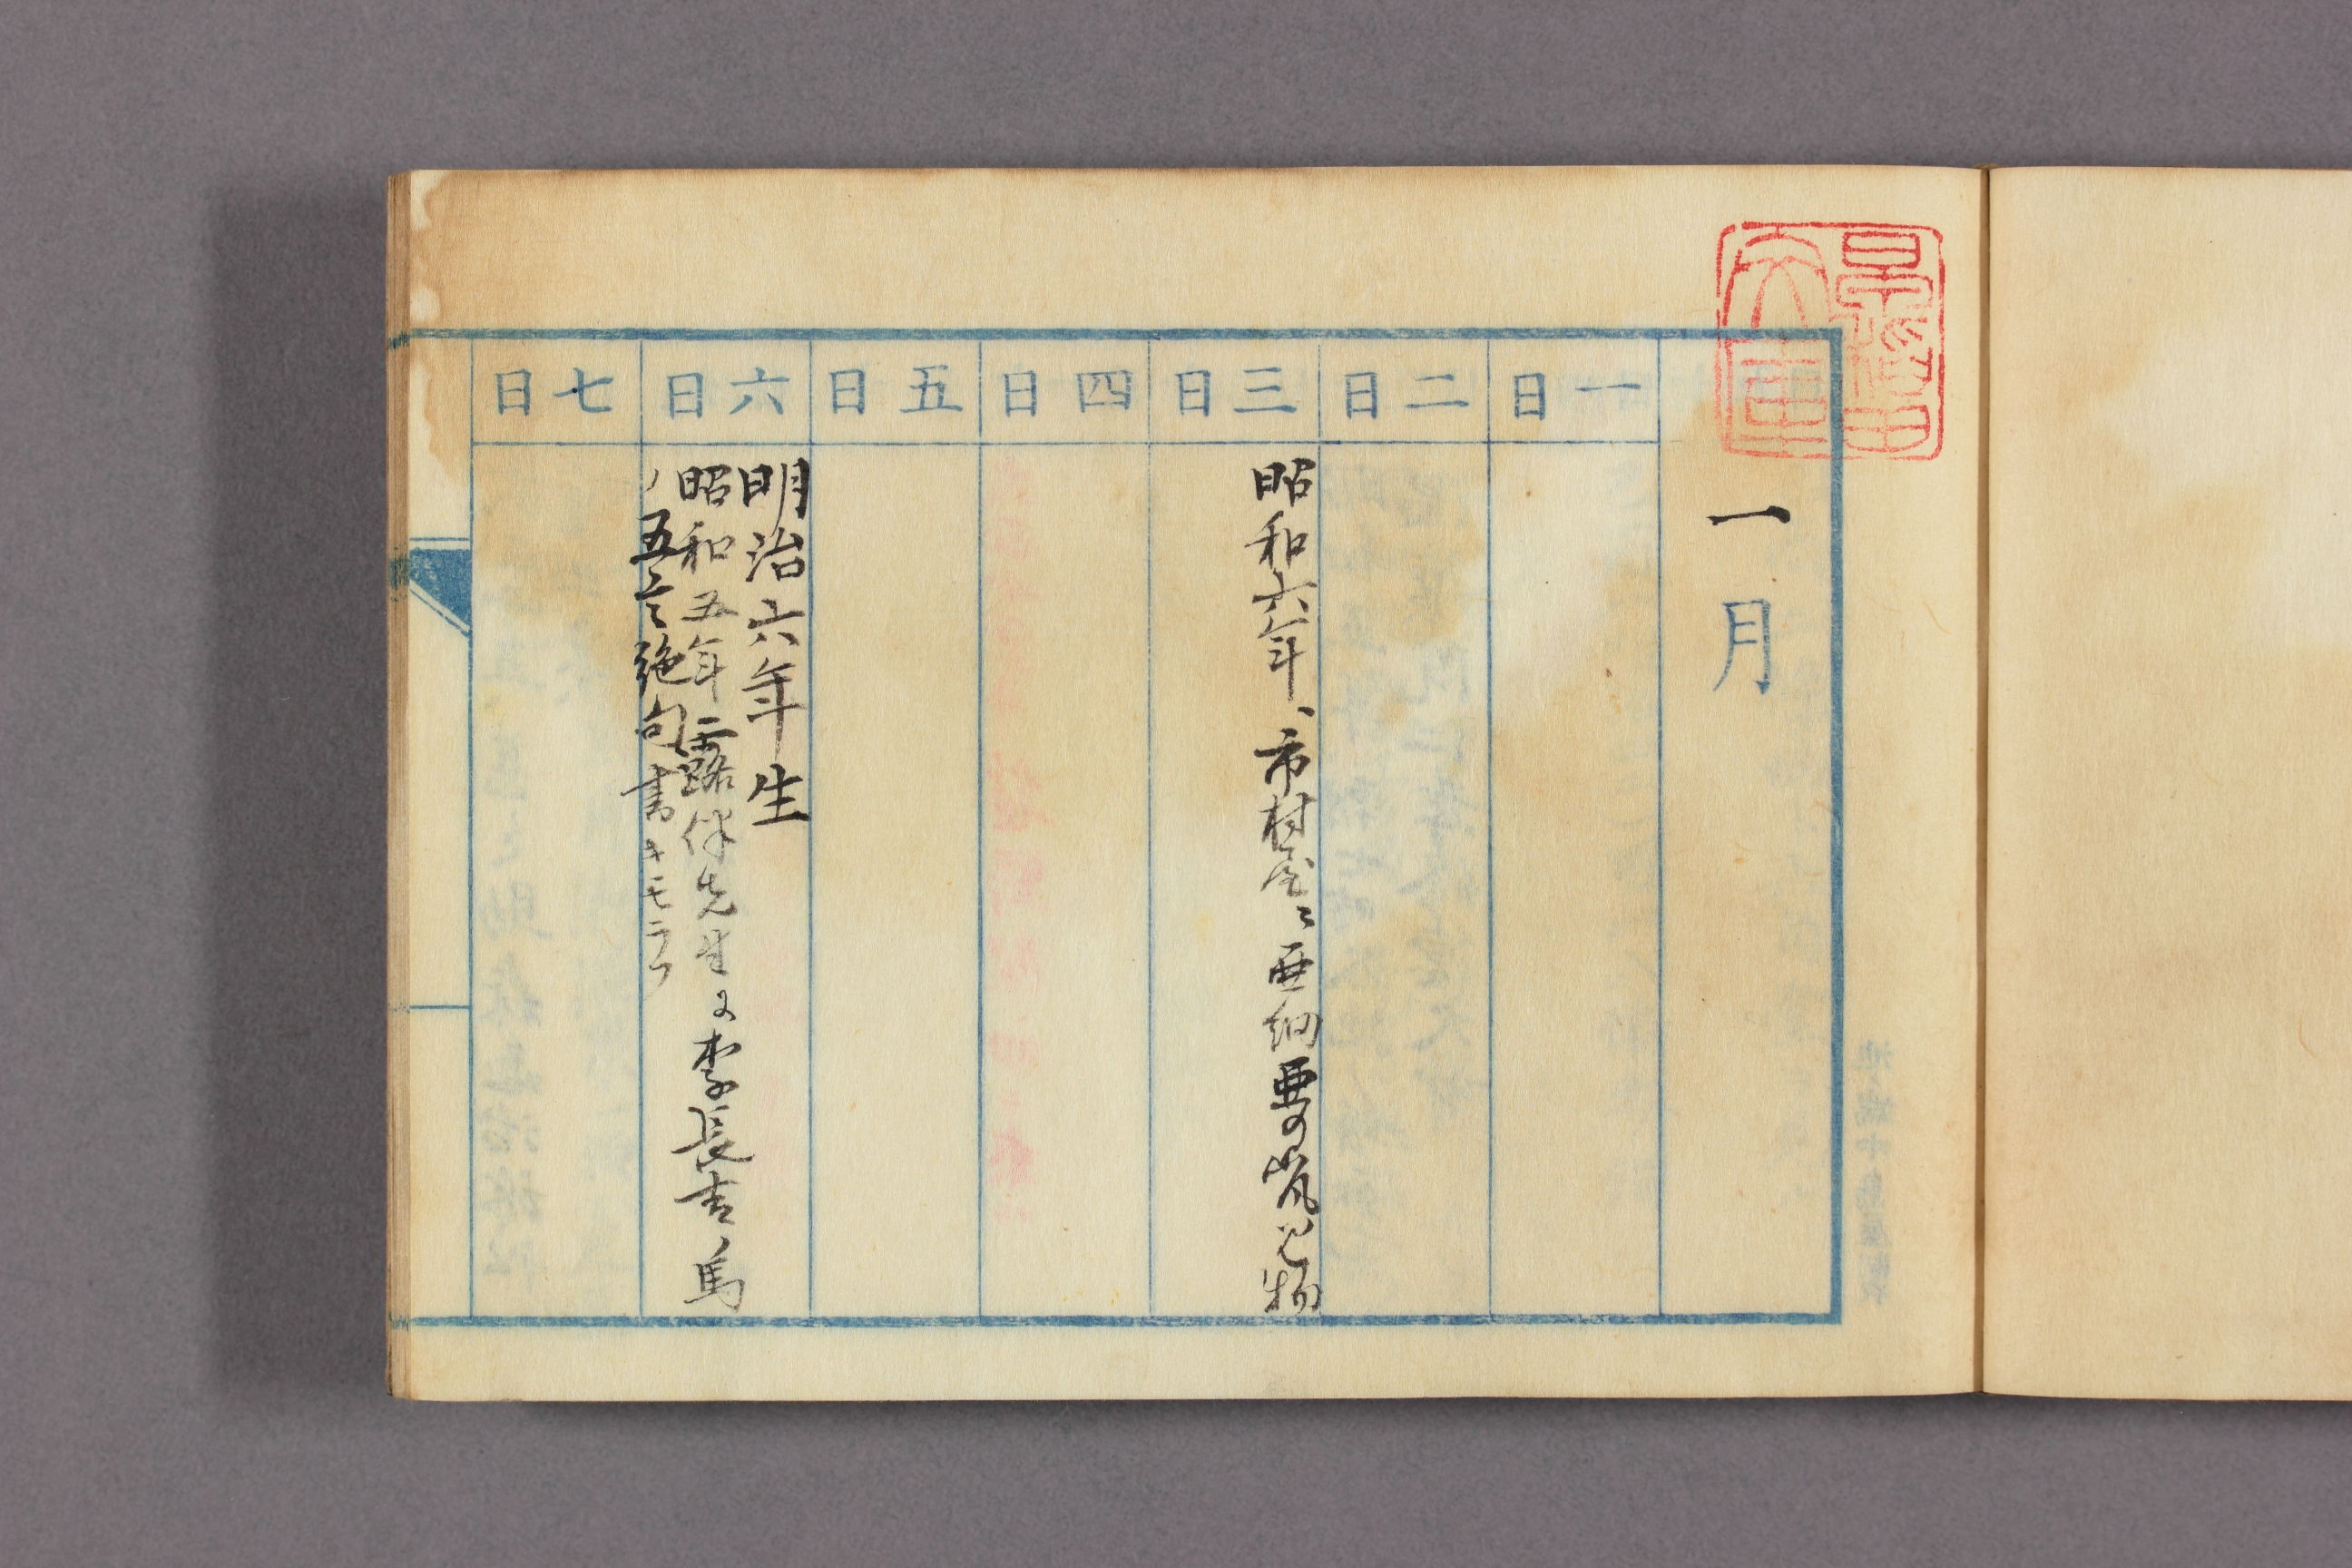 一月
一日
二日
三日
昭和六年、市村座ニ亜細亜の嵐見物
四日
五日
六日
明治六年生
昭和五年露伴先生に李長吉ノ馬
ノ五言絶句書キモラフ
七日